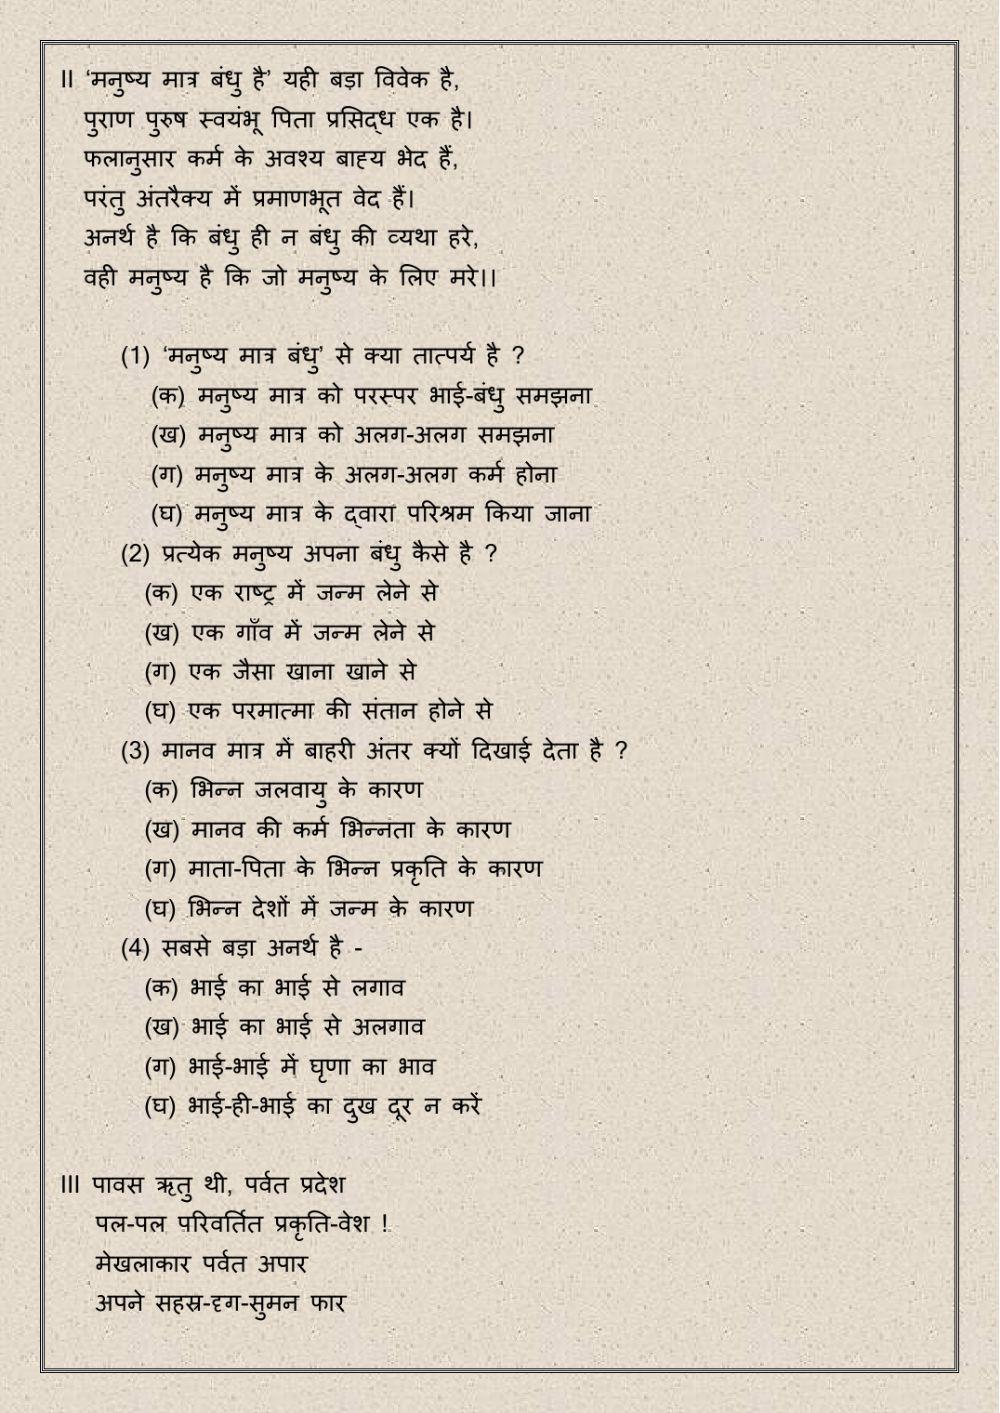 II ‘मनुष्य मात्र बंधु है’ यही बड़ा विवेक है,
पुराण पुरुष स्वयंभू पिता प्रसिद्ध एक है।
फलानुसार कर्म के अवश्य बाह्य भेद हैं,
परंतु अंतरैक्य में प्रमाणभूत वेद हैं।
अनर्थ है कि बंधु ही न बंधु की व्यथा हरे,
वही मनुष्य है कि जो मनुष्य के लिए मरे।।
(1) ‘मनुष्य मात्र बंधु’ से क्या तात्पर्य है ?
(क) मनुष्य मात्र को परस्पर भाई-बंधु समझना
(ख) मनुष्य मात्र को अलग-अलग समझना
(ग) मनुष्य मात्र के अलग-अलग कर्म होना
(घ) मनुष्य मात्र के द्वारा परिश्रम किया जाना
(2) प्रत्येक मनुष्य अपना बंधु कैसे है ?
(क) एक राष्ट्र में जन्म लेने से
(ख) एक गाँव में जन्म लेने से
(ग) एक जैसा खाना खाने से
(घ) एक परमात्मा की संतान होने से
(3) मानव मात्र में बाहरी अंतर क्यों दिखाई देता है ?
(क) भिन्न जलवायु के कारण
(ख) मानव की कर्म भिन्नता के कारण
(ग) माता-पिता के भिन्न प्रकृति के कारण
(घ) भिन्न देशों में जन्म के कारण
(4) सबसे बड़ा अनर्थ है -
(क) भाई का भाई से लगाव
(ख) भाई का भाई से अलगाव
(ग) भाई-भाई में घृणा का भाव
(घ) भाई-ही-भाई का दुख दूर न करें
III पावस ऋतु थी, पर्वत प्रदेश
पल-पल परिवर्तित प्रकृति-वेश !
मेखलाकार पर्वत अपार
अपने सहस्र-दृग-सुमन फार